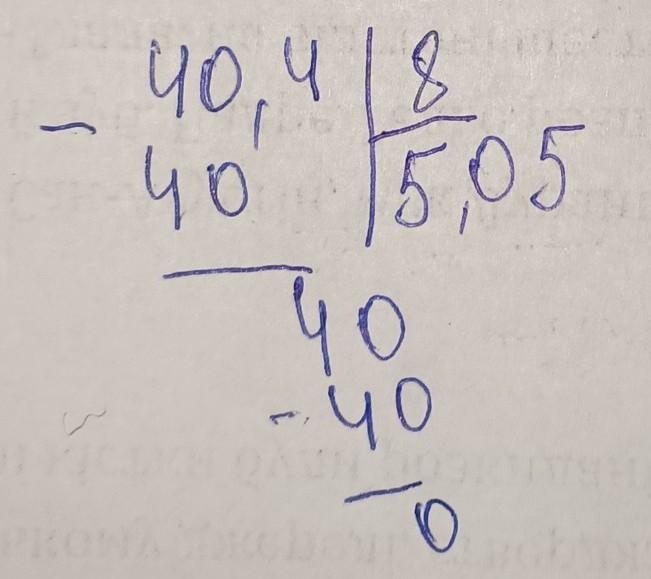 40,4 | 8
- 40 | 5,05
40
- 40
0